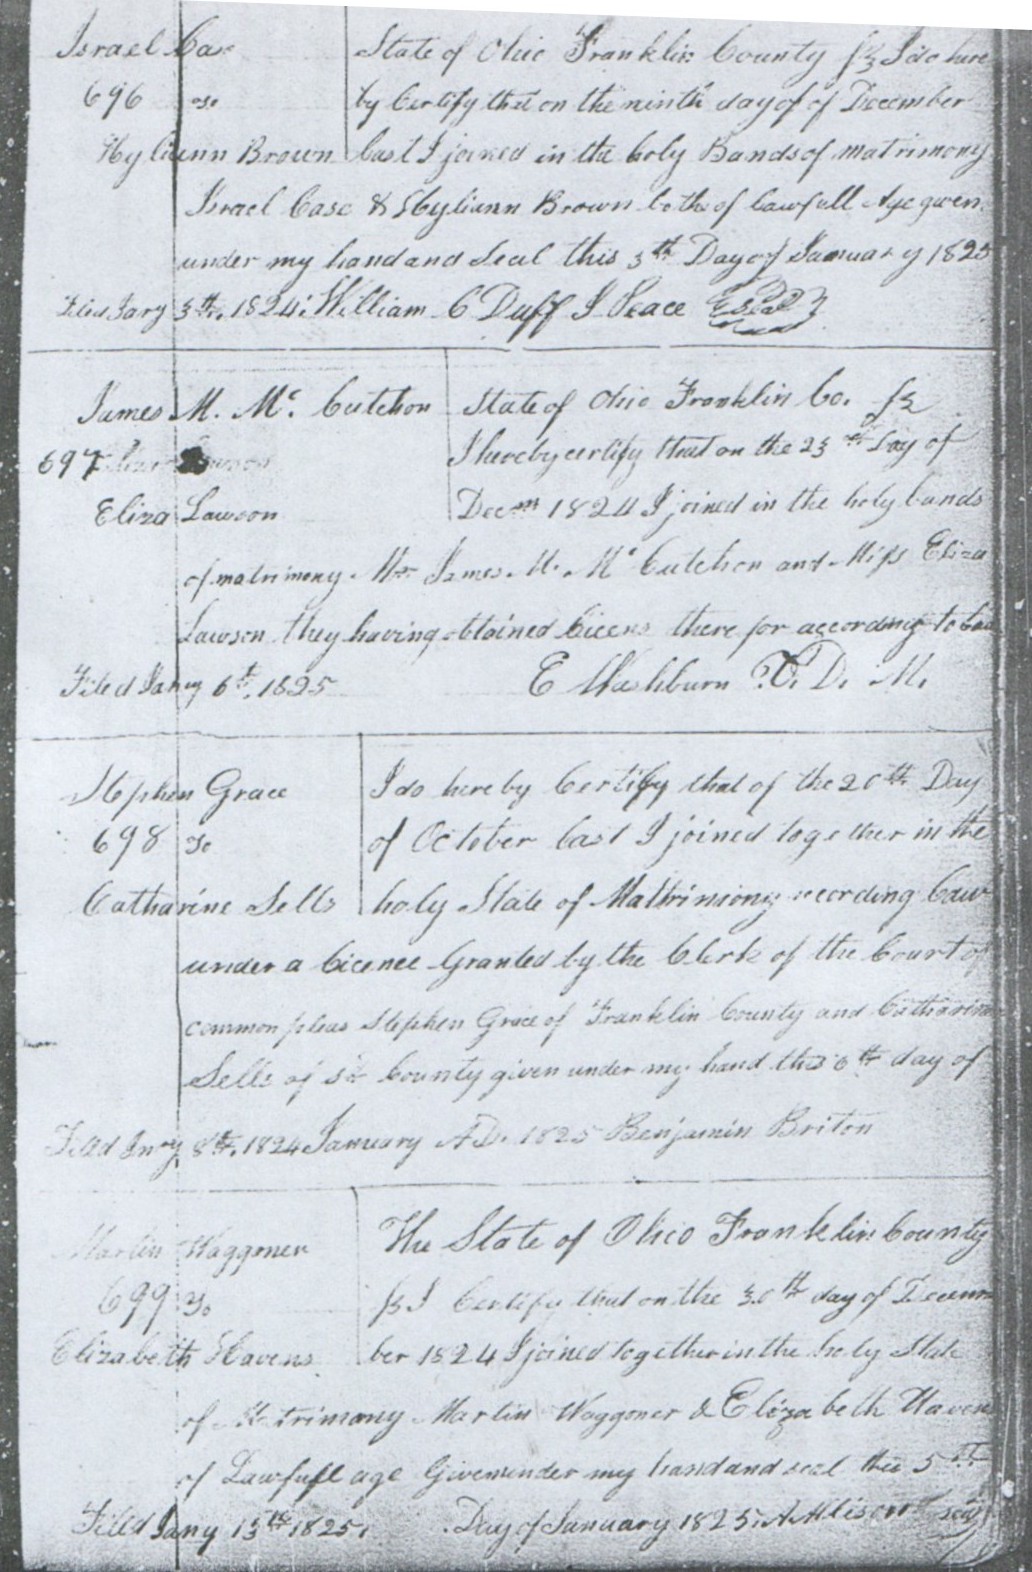 Israel Case
696 to
Hyliann Brown
State of Ohio Franklin County ss I do here
by Certify that on the ninth day of of December
last I joined in the holy Bands of matrimony
Israel Case & Hyliann Brown both of lawfull Age given
under my hand and Seal this 3th Day of January 1825
Filed Jary 3th. 1824. William C Duff J Peace Seal
James M. Mc. Cutchon
697
Eliza Lawson
State of Ohio Franklin Co. ss
I hereby certify that on the 23th day of
Decm 1824 I joined in the holy bands
of matrimony Mr James M. Mc Cutchon and Miss Eliza
Lawson they having obtained licens there for according to law
Filed Jany 6th. 1825 E Washburn V. D. M.
Stephen Grace
698 to
Catharine Sells
I do hereby Certify that of the 20th Day
of October last I joined together in the
holy State of Mattrimony according law
under a licence Granted by the Clerk of the Court of
common pleas Stephen Grace of Franklin County and Catharine
Sells of sd County given under my hand this 6th day of
Filed Jnay 8th. 1824 January A.D. 1825 Benjamin Briton
Martin Waggoner
699 to
Elizabeth Havens
The State of Ohio Franklin County
ss I Certify that on the 30th day of Decem
ber 1824 I joined together in the holy State
of Matrimony Martin Waggoner & Elizabeth Havens
of Lawfull age Given under my hand and seal this 5th
Filed Jany 13th 1825. Day of January 1825. A Allison seal